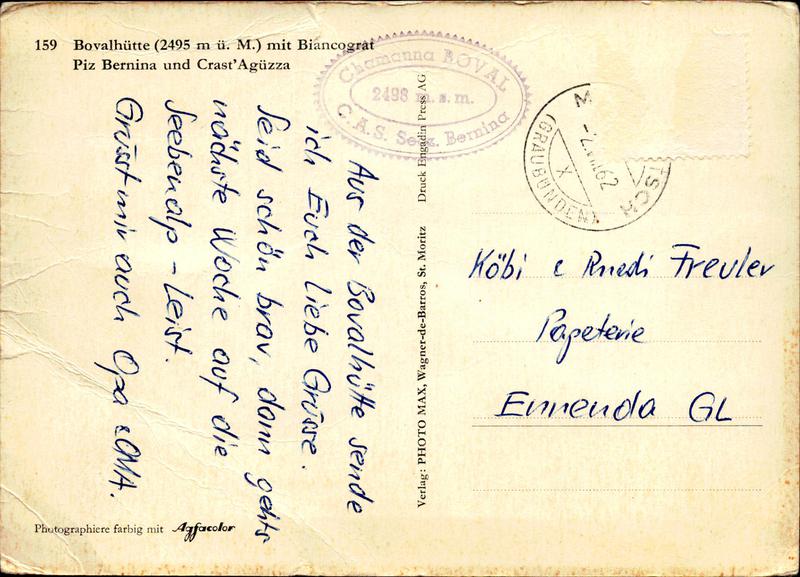 159 Bovalhütte (2495 m ü. M.) mit Biancograt
Piz Bernina und Crast'Agüzza
Chamanna BOVAL
2498 m.s.m.
C.A.S. Sekt. Bernina
(GRAUBÜNDEN)
X
Aus der Bovalhütte sende
ich Euch liebe Grüsse.
Seid schön brav, dann gehts
nächste Woche auf die
Seebenalp - Leist.
Grüsst mir auch Opa & OMA.
Verlag: PHOTO MAX, Wagner-de-Barros, St. Moritz Druck Engadin Press AG
Köbi & Ruedi Freuler
Papeterie
Ennenda GL
Photographiere farbig mit Agfacolor